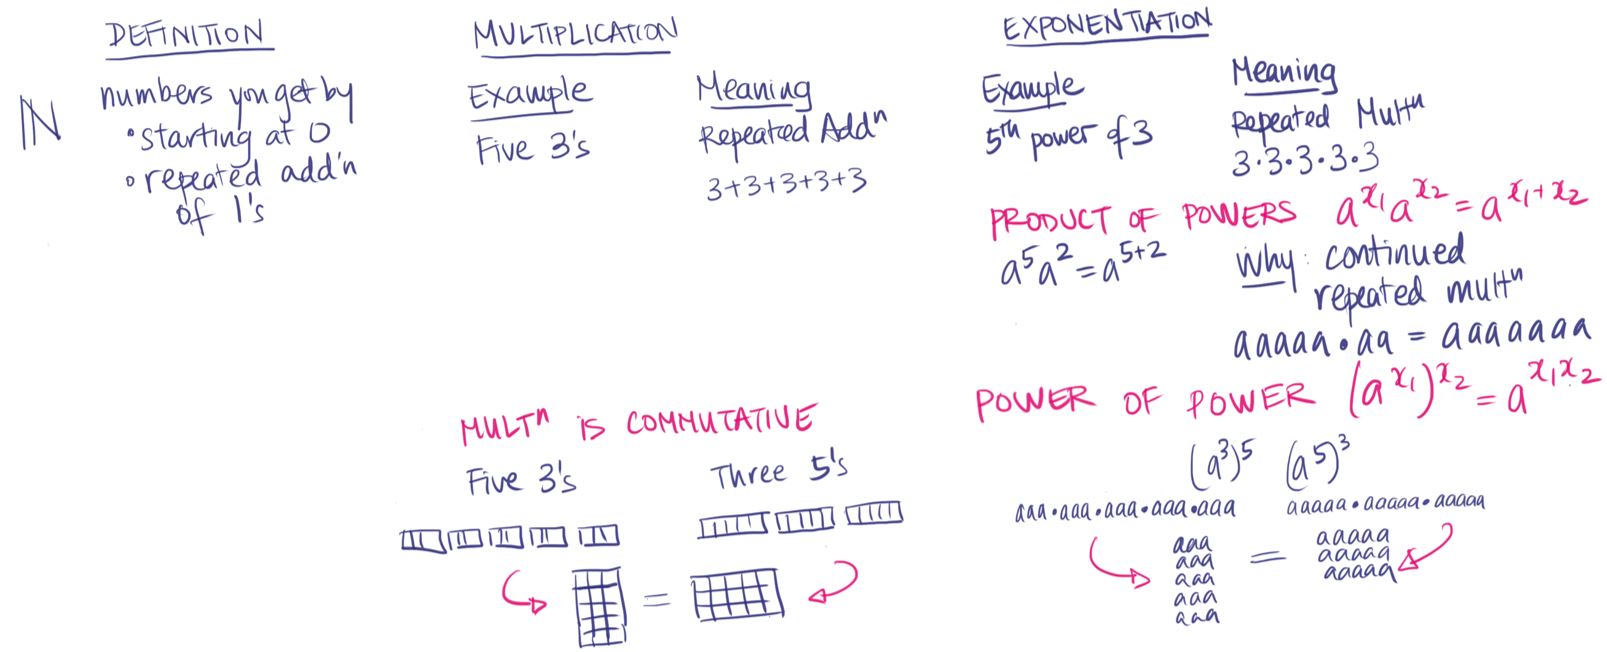 DEFINITION
ℕ
numbers you get by
• starting at 0
• repeated add'n
of 1's
MULTIPLICATION
Example
Five 3's
Meaning
Repeated Addⁿ
3+3+3+3+3
MULTⁿ IS COMMUTATIVE
Five 3's
Three 5's
=
EXPONENTIATION
Example
5ᵗʰ power of 3
Meaning
Repeated Multⁿ
3·3·3·3·3
PRODUCT OF POWERS a^x₁ a^x₂ = a^(x₁+x₂)
a⁵a² = a⁵⁺²
Why: continued
repeated multⁿ
aaaaa • aa = aaaaaaa
POWER OF POWER (a^x₁)^x₂ = a^(x₁x₂)
(a³)⁵ (a⁵)³
aaa•aaa•aaa•aaa•aaa
aaaaa•aaaaa•aaaaa
aaa
aaa
aaa
aaa
aaa
=
aaaaa
aaaaa
aaaaa